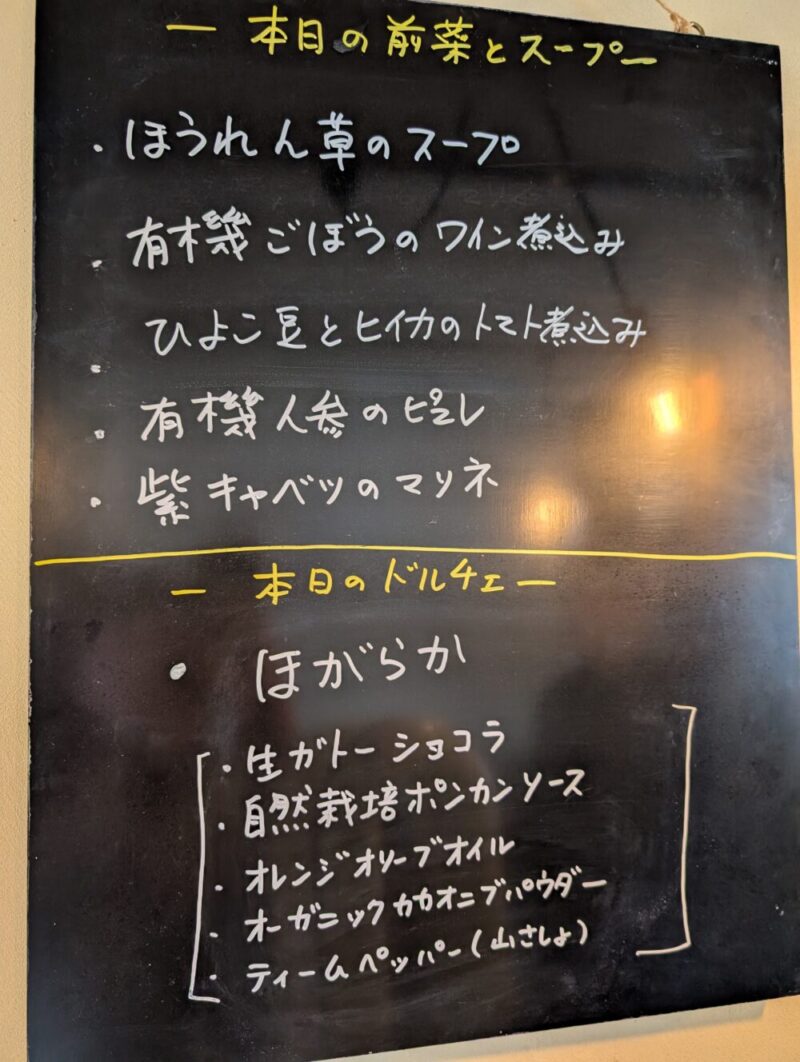 ー 本日の前菜とスープー
・ほうれん草のスープ
・有機ごぼうのワイン煮込み
・ひよこ豆とヒイカのトマト煮込み
・有機人参のピュレ
・紫キャベツのマリネ
ー 本日のドルチェ ー
・ほがらか
・生ガトーショコラ
・自然栽培ポンカンソース
・オレンジオリーブオイル
・オーガニックカカオニブパウダー
・ティームペッパー(山さしょ)